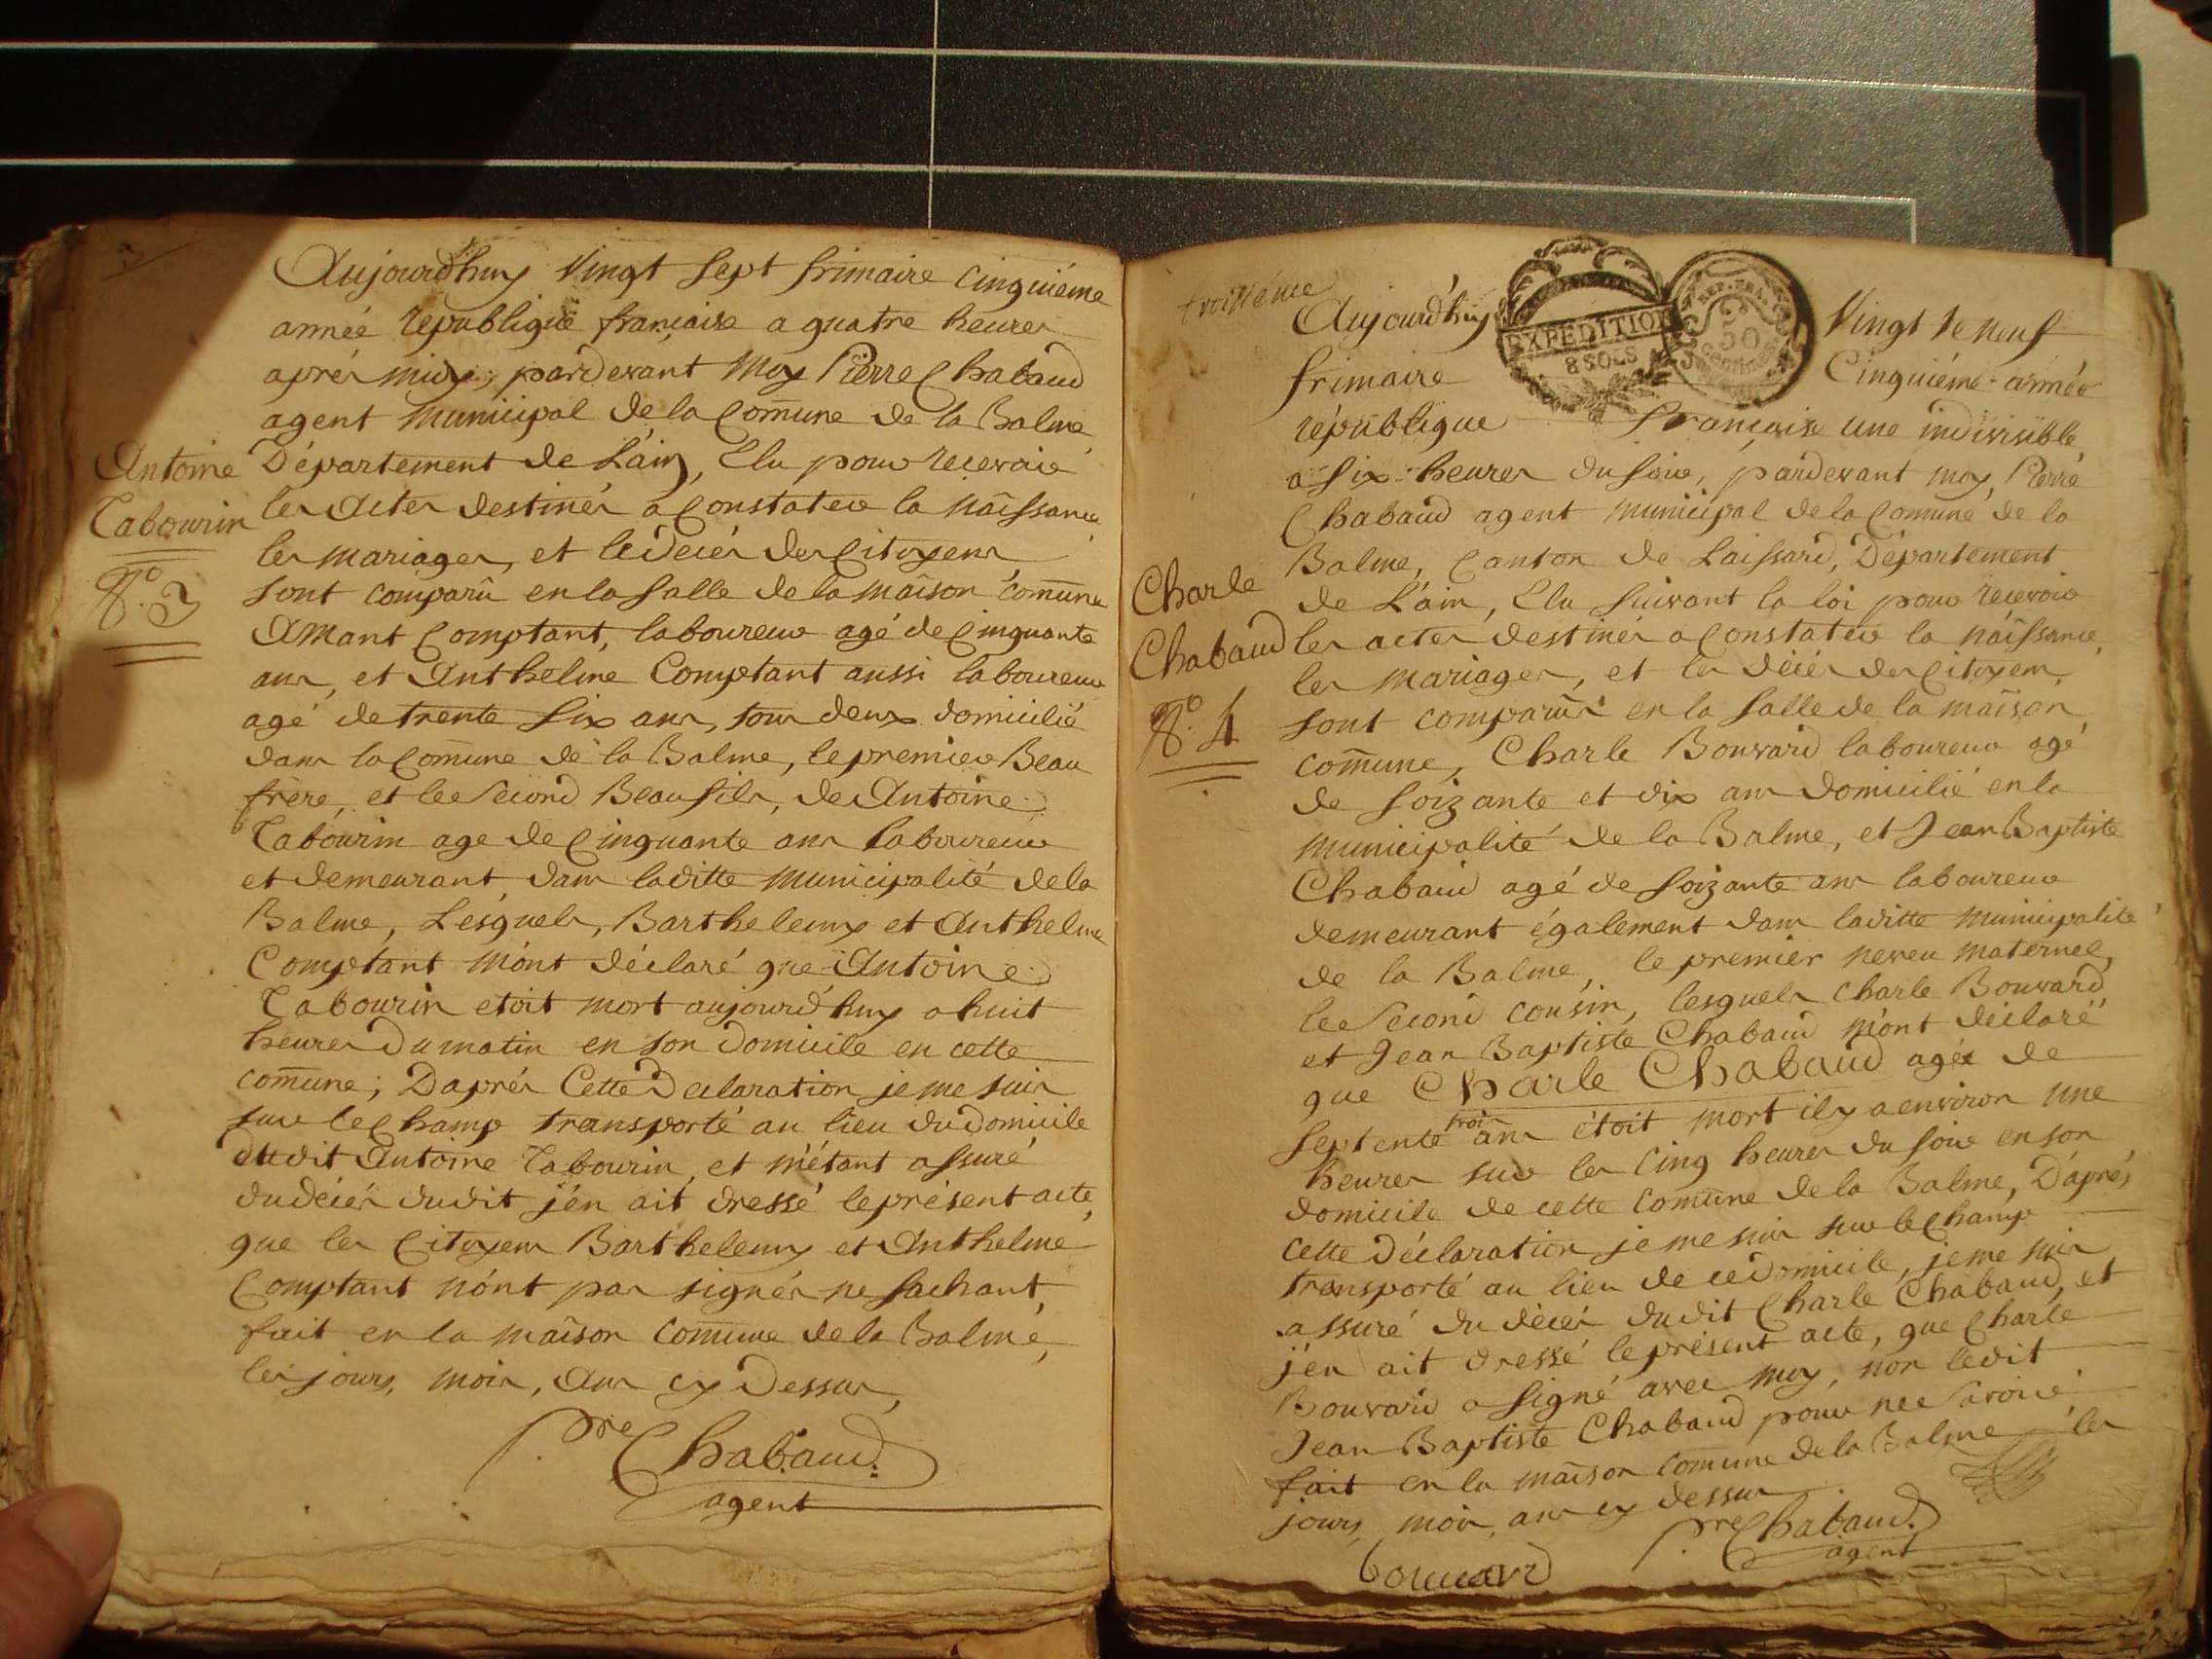 Aujourd'huy Vingt sept frimaire cinquiéme
année république française a quatre heures
aprés midy, pardevant moy Pierre Chabaud
agent municipal de la Com̄une de la Balme
Département de L'ain, Elu pour recevoir
les actes destinés a Constater la naissance
les mariages, et le décés des Citoyens
sont comparû en la salle de la maison com̄une
Amant Comptant, laboureur agé de Cinquante
ans, et Anthelme Comptant aussi laboureur
agé de trente six ans, tous deux domicilié
dans la Com̄une de la Balme, le premier Beau
frere, et le Second Beau fils, de Antoine
Tabourin age de Cinquante ans laboureur
et demeurant dans laditte municipalité de la
Balme, Lesquels, Barthelemy et Anthelme
Comptant m'ont déclaré que Antoine
Tabourin etoit mort aujourd'huy a huit
heures du matin en son domicile en cette
com̄une; Daprés Cette Declaration je me suis
sur le Champ transporté au lieu du domicile
dudit Antoine Tabourin, et m'étant assuré
du décés dudit j'en ait dressé le présent acte,
que les Citoyens Barthelemy et Anthelme
Comptant n'ont pas signés ne sachant,
fait en la maison Com̄une de la Balme,
les jours, mois, ans cy dessus,
Pre Chabaud
agent
Antoine
Tabourin
No. 3
troisiéme
Aujourd'huy Vingt et neuf
EXPEDITION
8 SOLS
REP. FRA.
50
centimes
frimaire Cinquiéme année
république française une indivisible
a six heures du soir, pardevant moy, Pierre
Chabaud agent municipal de la Com̄une de la
Balme, Canton de Laissard, Département
de L'ain, Elu suivant la loi pour recevoir
les actes destinés a Constater la naissance,
les mariages, et les décés des Citoyens,
sont comparûs en la salle de la maison
com̄une, Charle Bouvard laboureur agé
de soizante et dix ans domicilié en la
municipalité de la Balme, et Jean Baptiste
Chabaud agé de soizante ans laboureur
demeurant également dans laditte municipalité
de la Balme, le premier neveu maternel,
le Second cousin, lesquels Charle Bouvard
et Jean Baptiste Chabaud m'ont déclaré
que Charle Chabaud agé de
septente trois ans étoit mort il y a environ une
heures sur les Cinq heures du soir en son
domicile de cette com̄une de la Balme, D'aprés
cette déclaration je me suis sur le Champ
transporté au lieu de ce domicile, je me suis
assuré du décés dudit Charle Chabaud, et
j'en ait dressé le présent acte, que Charle
Bouvard a signé avec moy, non ledit
Jean Baptiste Chabaud pour ne Savoir
fait en la maison com̄une de la Balme les
jours, mois, ans cy dessus
Pre Chabaud
agent
bouvard
Charle
Chabaud
No. 4